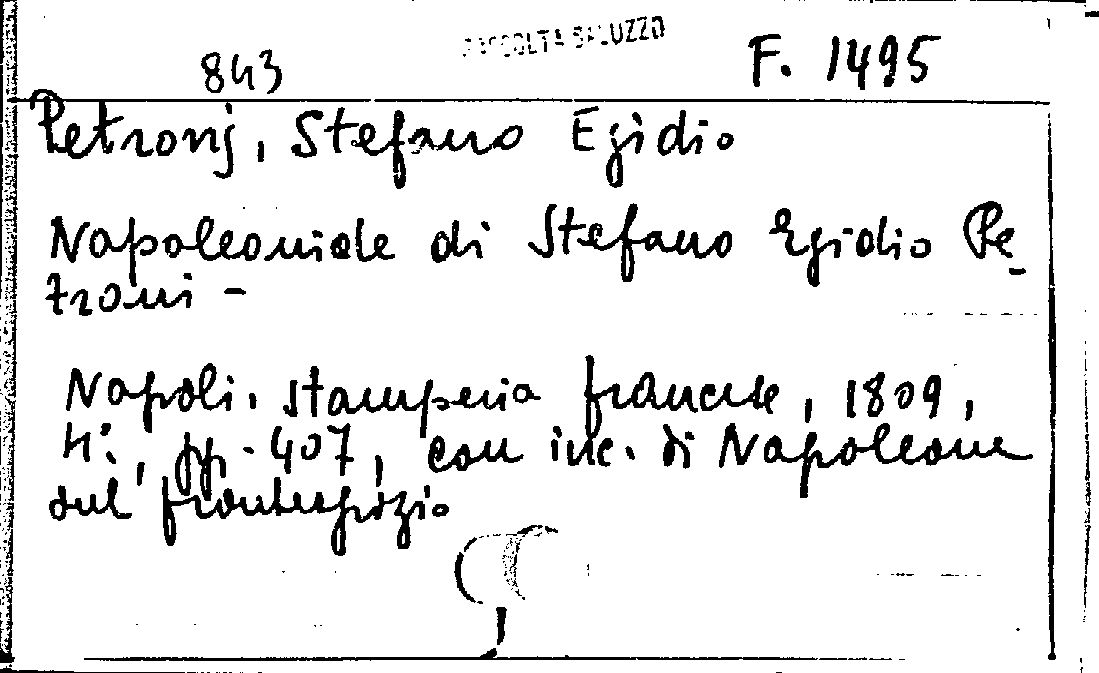 RACCOLTA SALUZZO
843
F. 1495
Petronj, Stefano Egidio
Napoleonide di Stefano Egidio Pe-
troni -
Napoli. Stamperia francese, 1809,
4º, pp. 407, con inc. di Napoleone
sul frontespizio